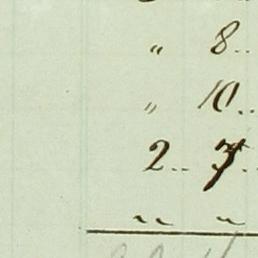 " 8..
" 10..
2.. 7..
" "